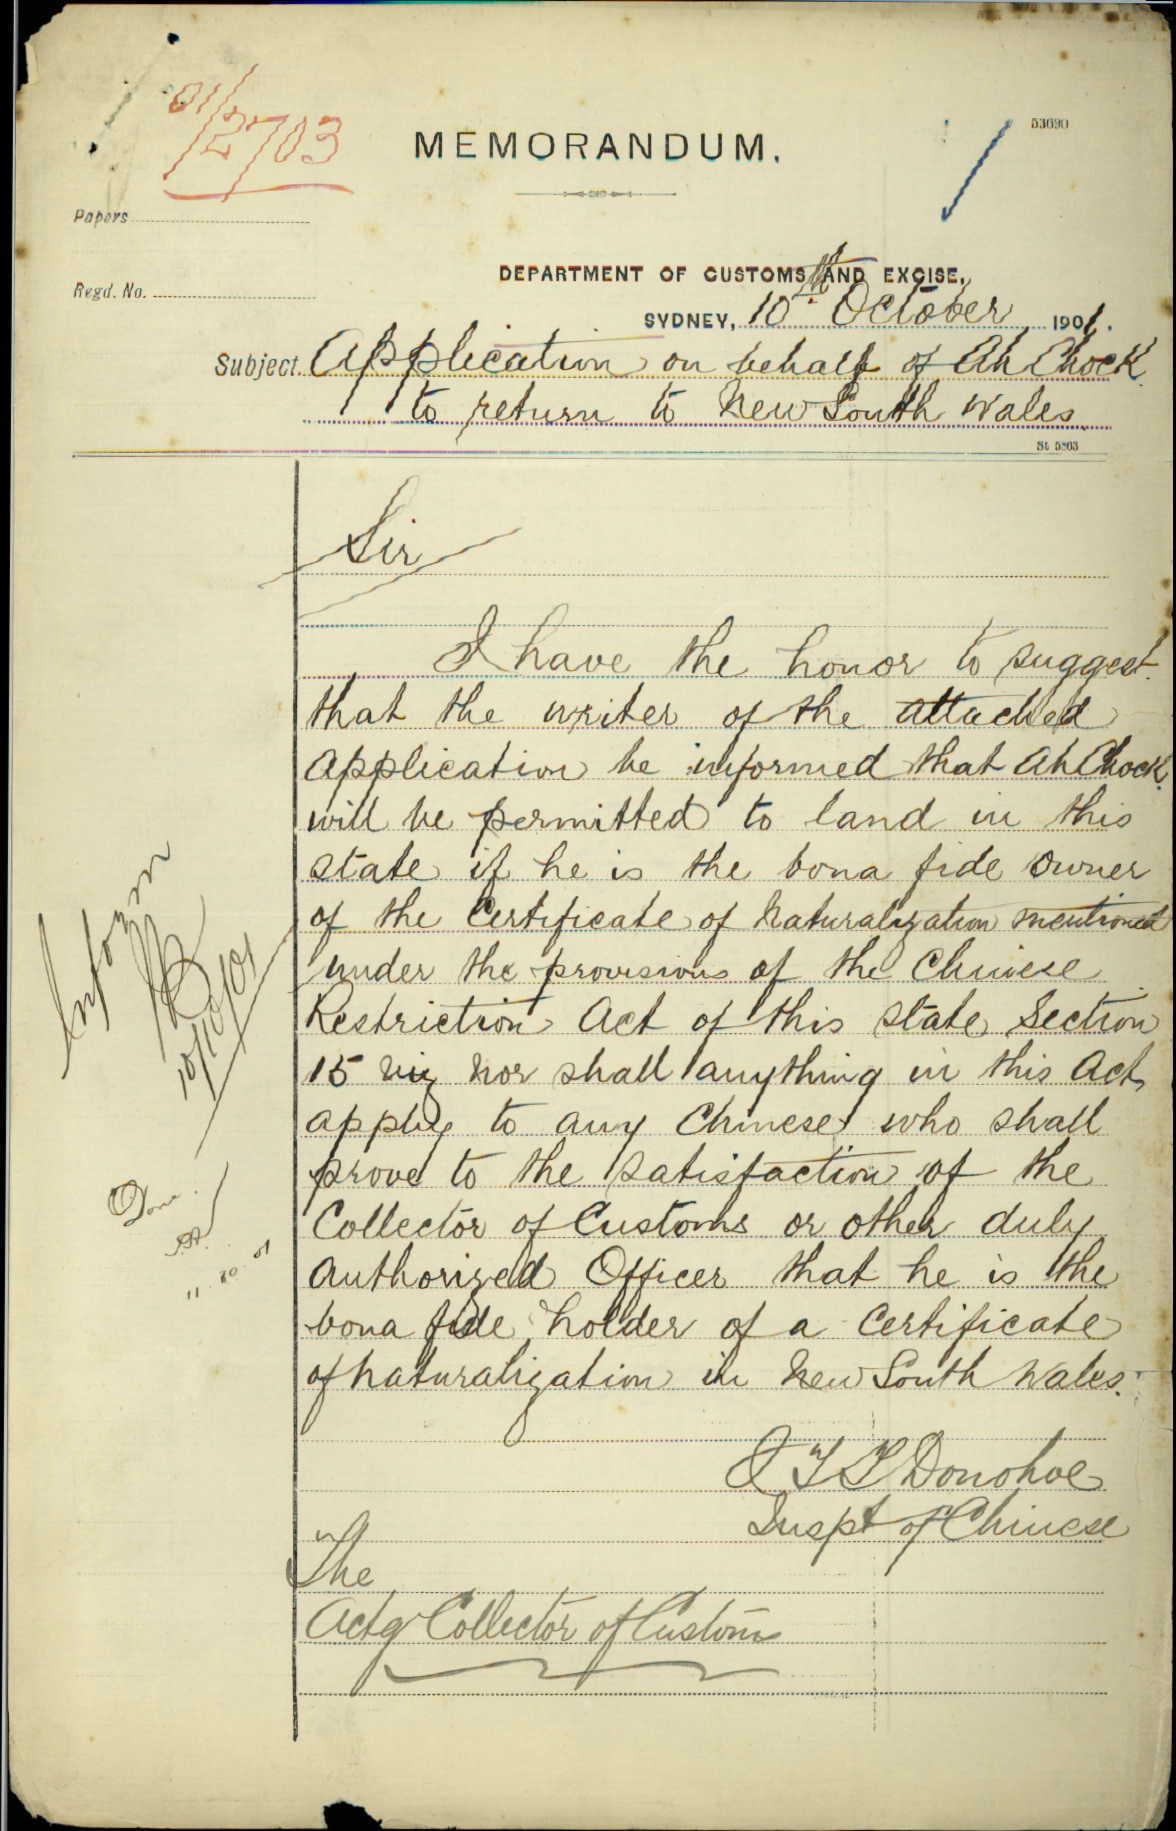 01/2703
MEMORANDUM.
53690
Papers
Regd. No.
DEPARTMENT OF CUSTOMS AND EXCISE,
SYDNEY, 10th October 1901.
Subject. Application on behalf of Ah Chock
to return to New South Wales
St 5803
Sir
I have the honor to suggest
that the writer of the attached
application be informed that Ah Chock
will be permitted to land in this
state if he is the bona fide owner
of the Certificate of Naturalization mentioned
under the provisions of the Chinese
Restriction Act of this state Section
15 viz Nor shall anything in this Act
apply to any Chinese who shall
prove to the satisfaction of the
Collector of Customs or other duly
Authorized Officer that he is the
bona fide holder of a Certificate
of Naturalization in New South Wales.
Inform
10/10/01
Done
11.10.01
J T T Donohoe
Inspt of Chinese
The
Actg Collector of Customs